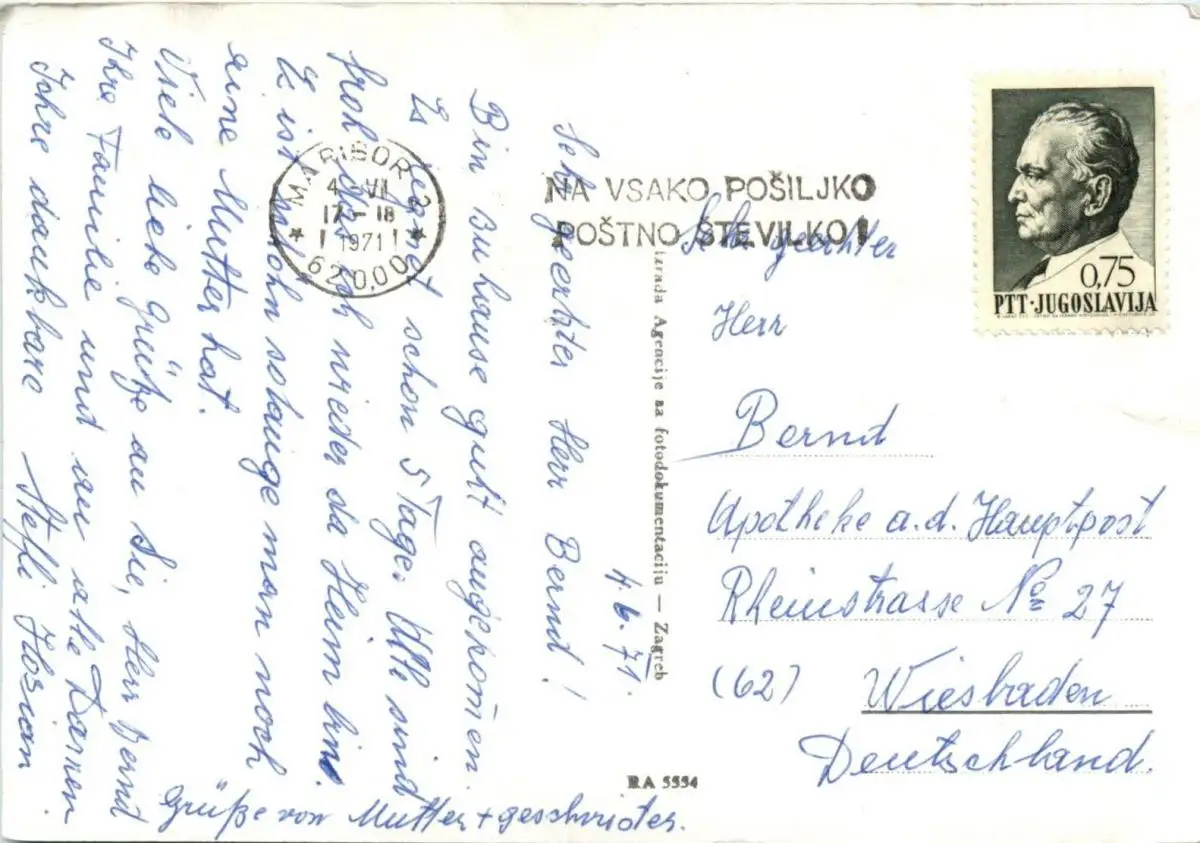 4.6.71.
Sehr geehrter Herr Bernd!
Bin zu hause gutt angekomen.
Es regnet schon 5 Tage. Alle sind
froh das ich wieder da Heim bin.
Es ist schön solange man noch
eine Mutter hat.
Viele liebe Grüße an Sie, Herr Bernd
Ihre Familie und an alle Damen
Ihre dankbare Steffi
Grüße von Mutter + geschwister.
MARIBOR 2
4. VII
17-18
1971
62000
NA VSAKO POŠILJKO
POŠTNO ŠTEVILKO!
0,75
PTT·JUGOSLAVIJA
Izrada Agencije za fotodokumentaciju — Zagreb
RA 5554
Sehr geehrter
Herr
Bernd
Apotheke a.d. Hauptpost
Rheinstrasse No 27
(62) Wiesbaden
Deutschland.